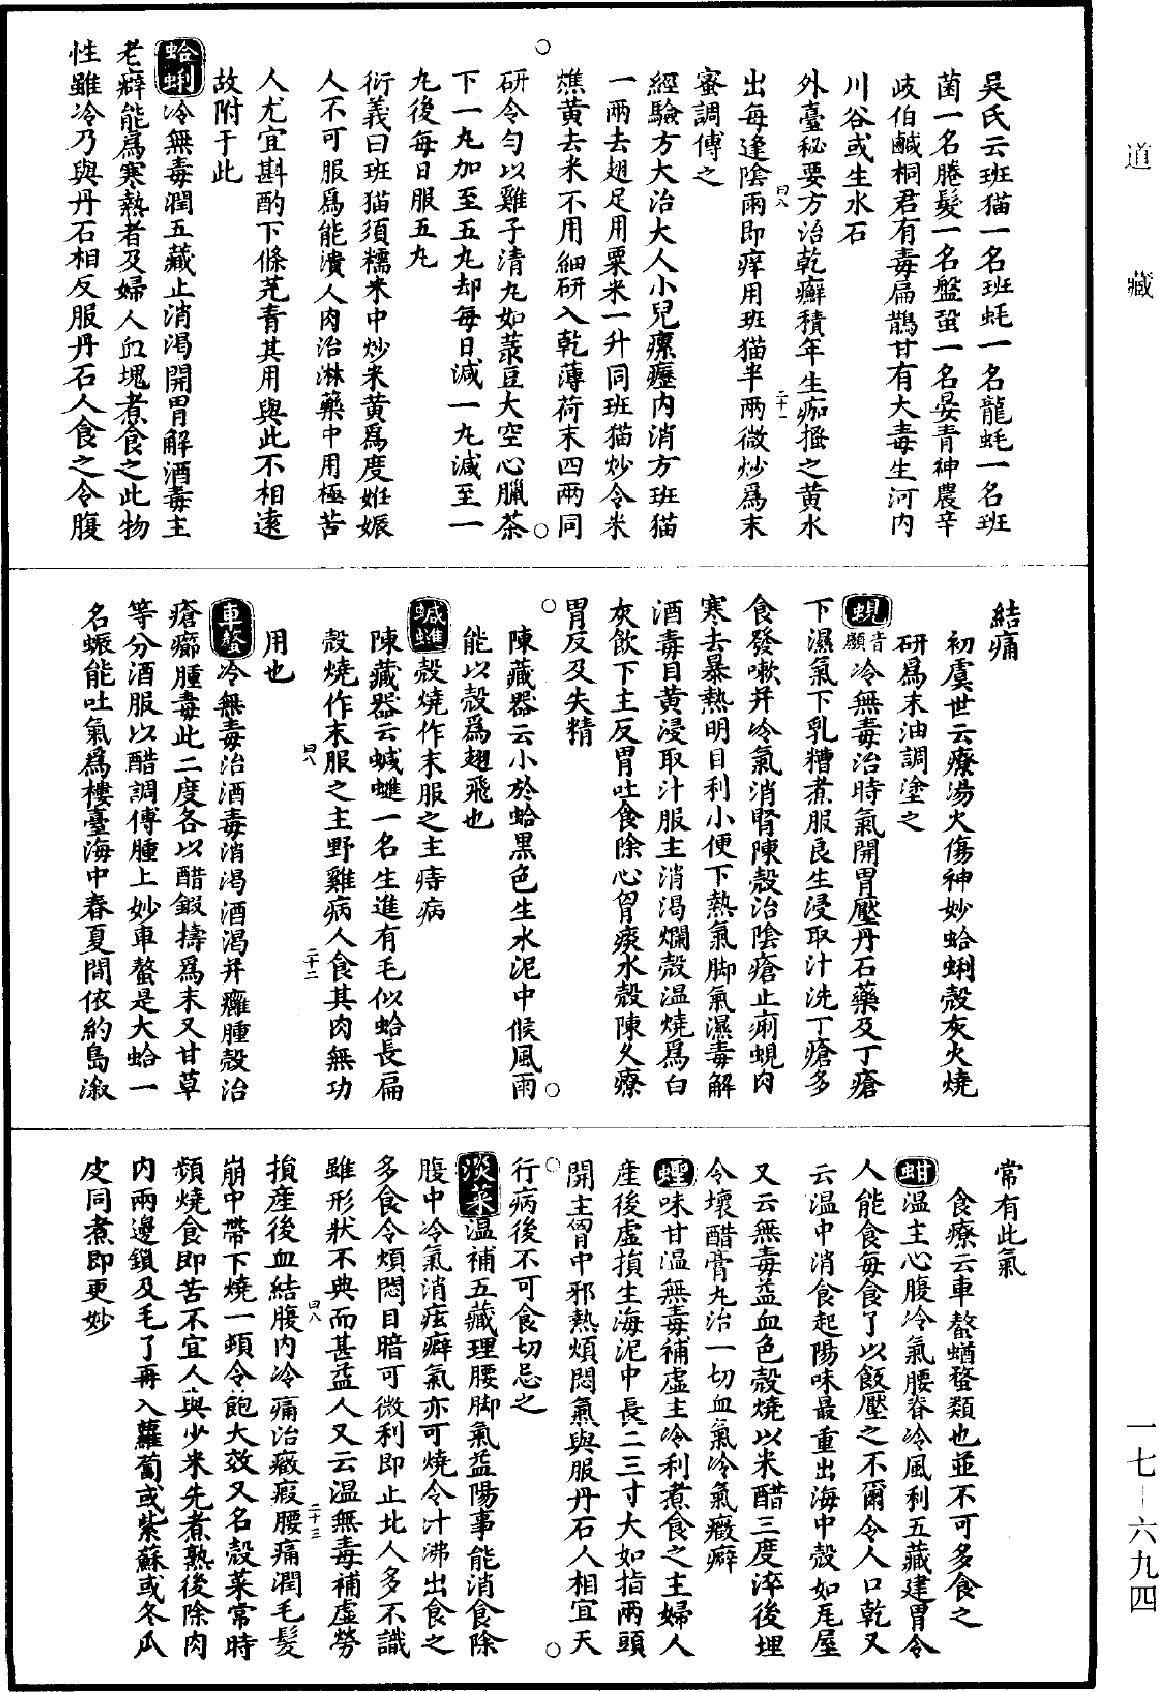 道藏
吳氏云班猫一名班蚝一名龍蚝一名班
菌一名腃髮一名盤蛩一名晏青神農辛
岐伯鹹桐君有毒扁鵲甘有大毒生河内
川谷或生水石
外臺秘要方治乾癬積年生痂搔之黄水
出每逢陰雨即痒用班猫半兩微炒爲末
蜜調傅之
經驗方大治大人小兒瘰癧内消方班猫
一兩去翅足用粟米一升同班猫炒令米
燋黄去米不用細研入乾薄荷末四兩同
研令勻以雞子清丸如菉豆大空心臘茶
下一丸加至五丸却每日減一丸減至一
丸後每日服五丸
衍義曰班猫須糯米中炒米黄爲度妊娠
人不可服爲能潰人肉治淋藥中用極苦
人尤宜斟酌下條芫青其用與此不相遠
故附于此
蛤蜊冷無毒潤五藏止消渴開胃解酒毒主
老癖能爲寒熱者及婦人血塊煮食之此物
性雖冷乃與丹石相反服丹石人食之令腹
曰八
二十一
結痛
初虞世云療湯火傷神妙蛤蜊殼灰火燒
研爲末油調塗之
蜆音顯冷無毒治時氣開胃壓丹石藥及丁瘡
下濕氣下乳糟煮服良生浸取汁洗丁瘡多
食發嗽并冷氣消腎陳殼治陰瘡止痢蜆肉
寒去暴熱明目利小便下熱氣脚氣濕毒解
酒毒目黄浸取汁服主消渴爛殼温燒爲白
灰飲下主反胃吐食除心胷痰水殼陳久療
胃反及失精
陳藏器云小於蛤黑色生水泥中候風雨
能以殼爲翅飛也
蝛𧐖殼燒作末服之主痔病
陳藏器云蝛𧐖一名生進有毛似蛤長扁
殼燒作末服之主野雞病人食其肉無功
用也
車螯冷無毒治酒毒消渴酒渴并癰腫殼治
瘡癤腫毒此二度各以醋鍛擣爲末又甘草
等分酒服以醋調傅腫上妙車螯是大蛤一
名蜄能吐氣爲樓臺海中春夏間依約島溆
曰八
二十二
常有此氣
食療云車螯蝤蝥類也並不可多食之
蚶温主心腹冷氣腰脊冷風利五藏建胃令
人能食每食了以飯壓之不爾令人口乾又
云温中消食起陽味最重出海中殼如瓦屋
又云無毒益血色殼燒以米醋三度淬後埋
令壞醋膏丸治一切血氣冷氣癥癖
蟶味甘温無毒補虛主冷利煮食之主婦人
産後虛損生海泥中長二三寸大如指兩頭
開主胷中邪熱煩悶氣與服丹石人相宜天
行病後不可食切忌之
淡菜温補五藏理腰脚氣益陽事能消食除
腹中冷氣消痃癖氣亦可燒令汁沸出食之
多食令煩悶目暗可微利即止北人多不識
雖形狀不典而甚益人又云温無毒補虛勞
損産後血結腹内冷痛治癥瘕腰痛潤毛髮
崩中帶下燒一頓令飽大效又名殼菜常時
頻燒食即苦不宜人與少米先煮熟後除肉
内兩邊鎖及毛了再入蘿蔔或紫蘇或冬瓜
皮同煮即更妙
曰八
二十三
一七-六九四